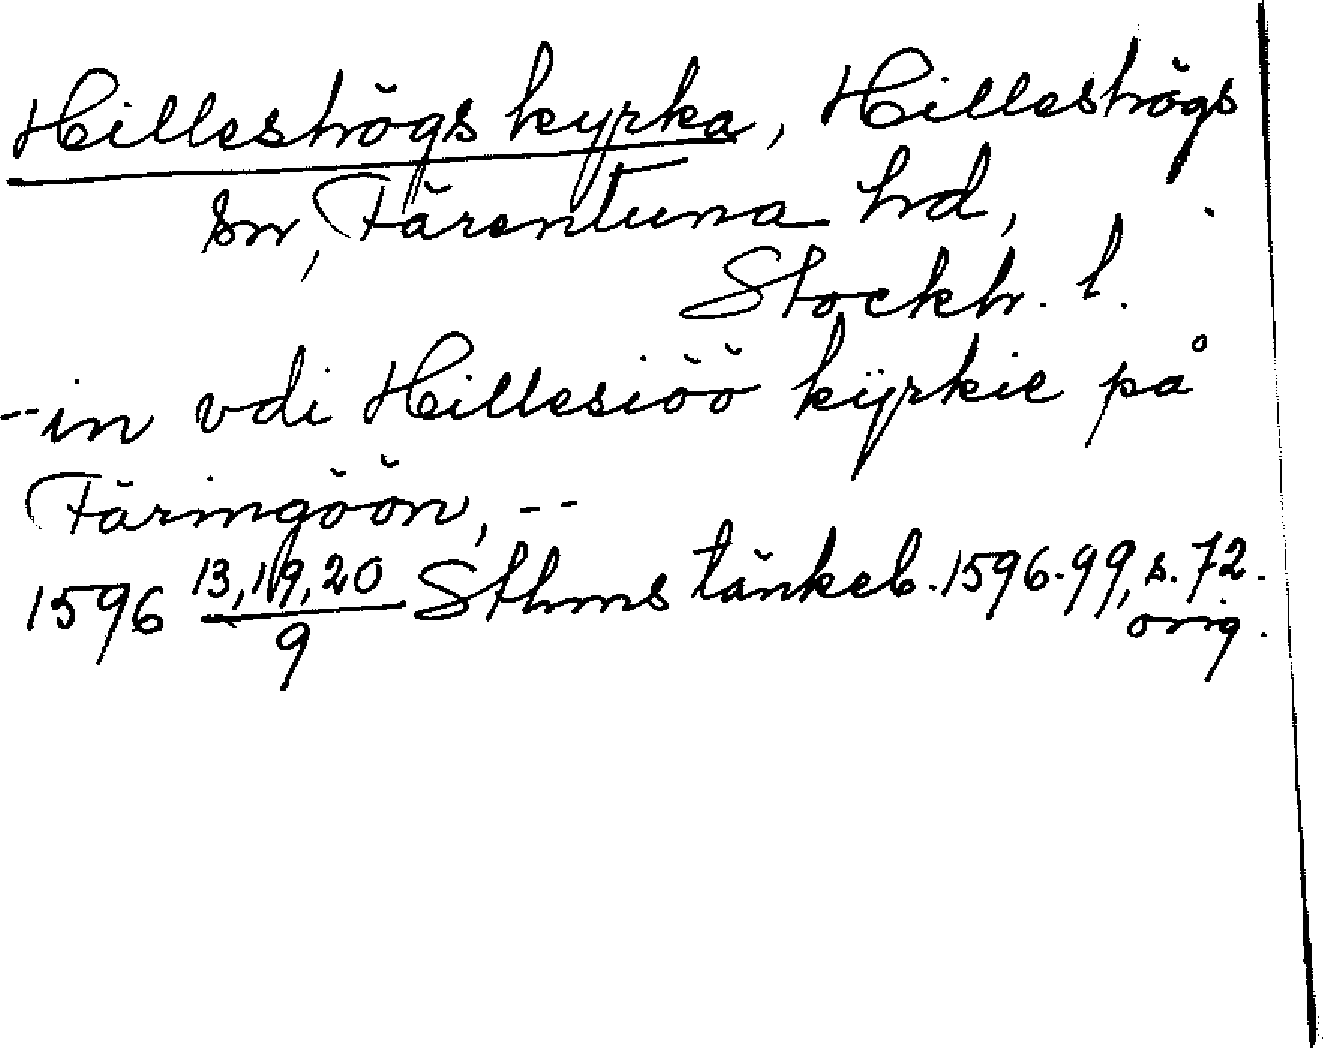 Hilleshögs kyrka, Hilleshögs
sn, Färentuna hd,
Stockh. l.
--in vdi Hillesiöö kÿrkie på
Färingöön, --
1596 13,19,20/9 Sthms tänkeb. 1596-99, s. 72.
orig.